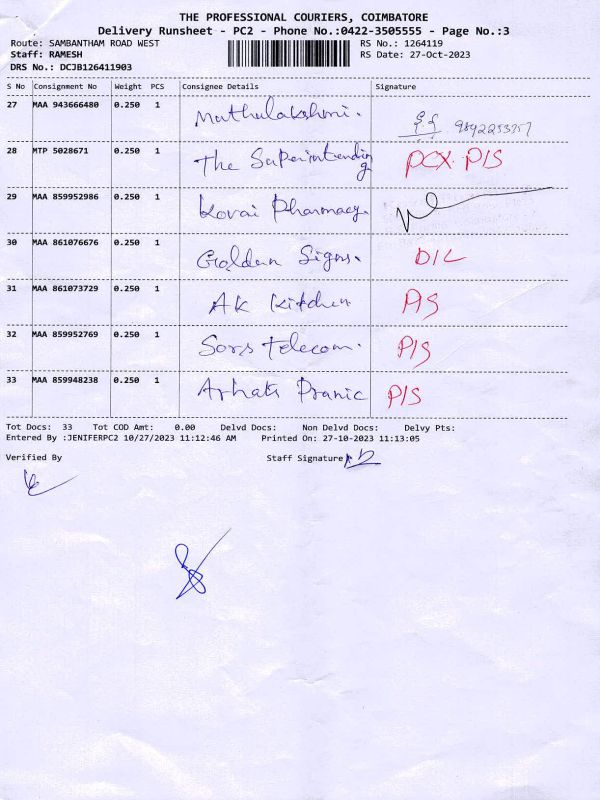 THE PROFESSIONAL COURIERS, COIMBATORE
Delivery Runsheet - PC2 - Phone No.:0422-3505555 - Page No.:3
Route: SAMBANTHAM ROAD WEST RS No.: 1264119
Staff: RAMESH RS Date: 27-Oct-2023
DRS No.: DCJB126411903
S No Consignment No Weight PCS Consignee Details Signature
27 MAA 943666480 0.250 1 Muthulakshmi. 9892253757
28 MTP 5028671 0.250 1 The Superintending PCX. P/S
29 MAA 859952986 0.250 1 Kovai Pharmacy.
30 MAA 861076676 0.250 1 Golden Signs. D/L
31 MAA 861073729 0.250 1 AK Kitchen P/S
32 MAA 859952769 0.250 1 Telecom. P/S
33 MAA 859948238 0.250 1 Arhats Pranic P/S
Tot Docs: 33 Tot COD Amt: 0.00 Delvd Docs: Non Delvd Docs: Delvy Pts:
Entered By :JENIFERPC2 10/27/2023 11:12:46 AM Printed On: 27-10-2023 11:13:05
Verified By Staff Signature